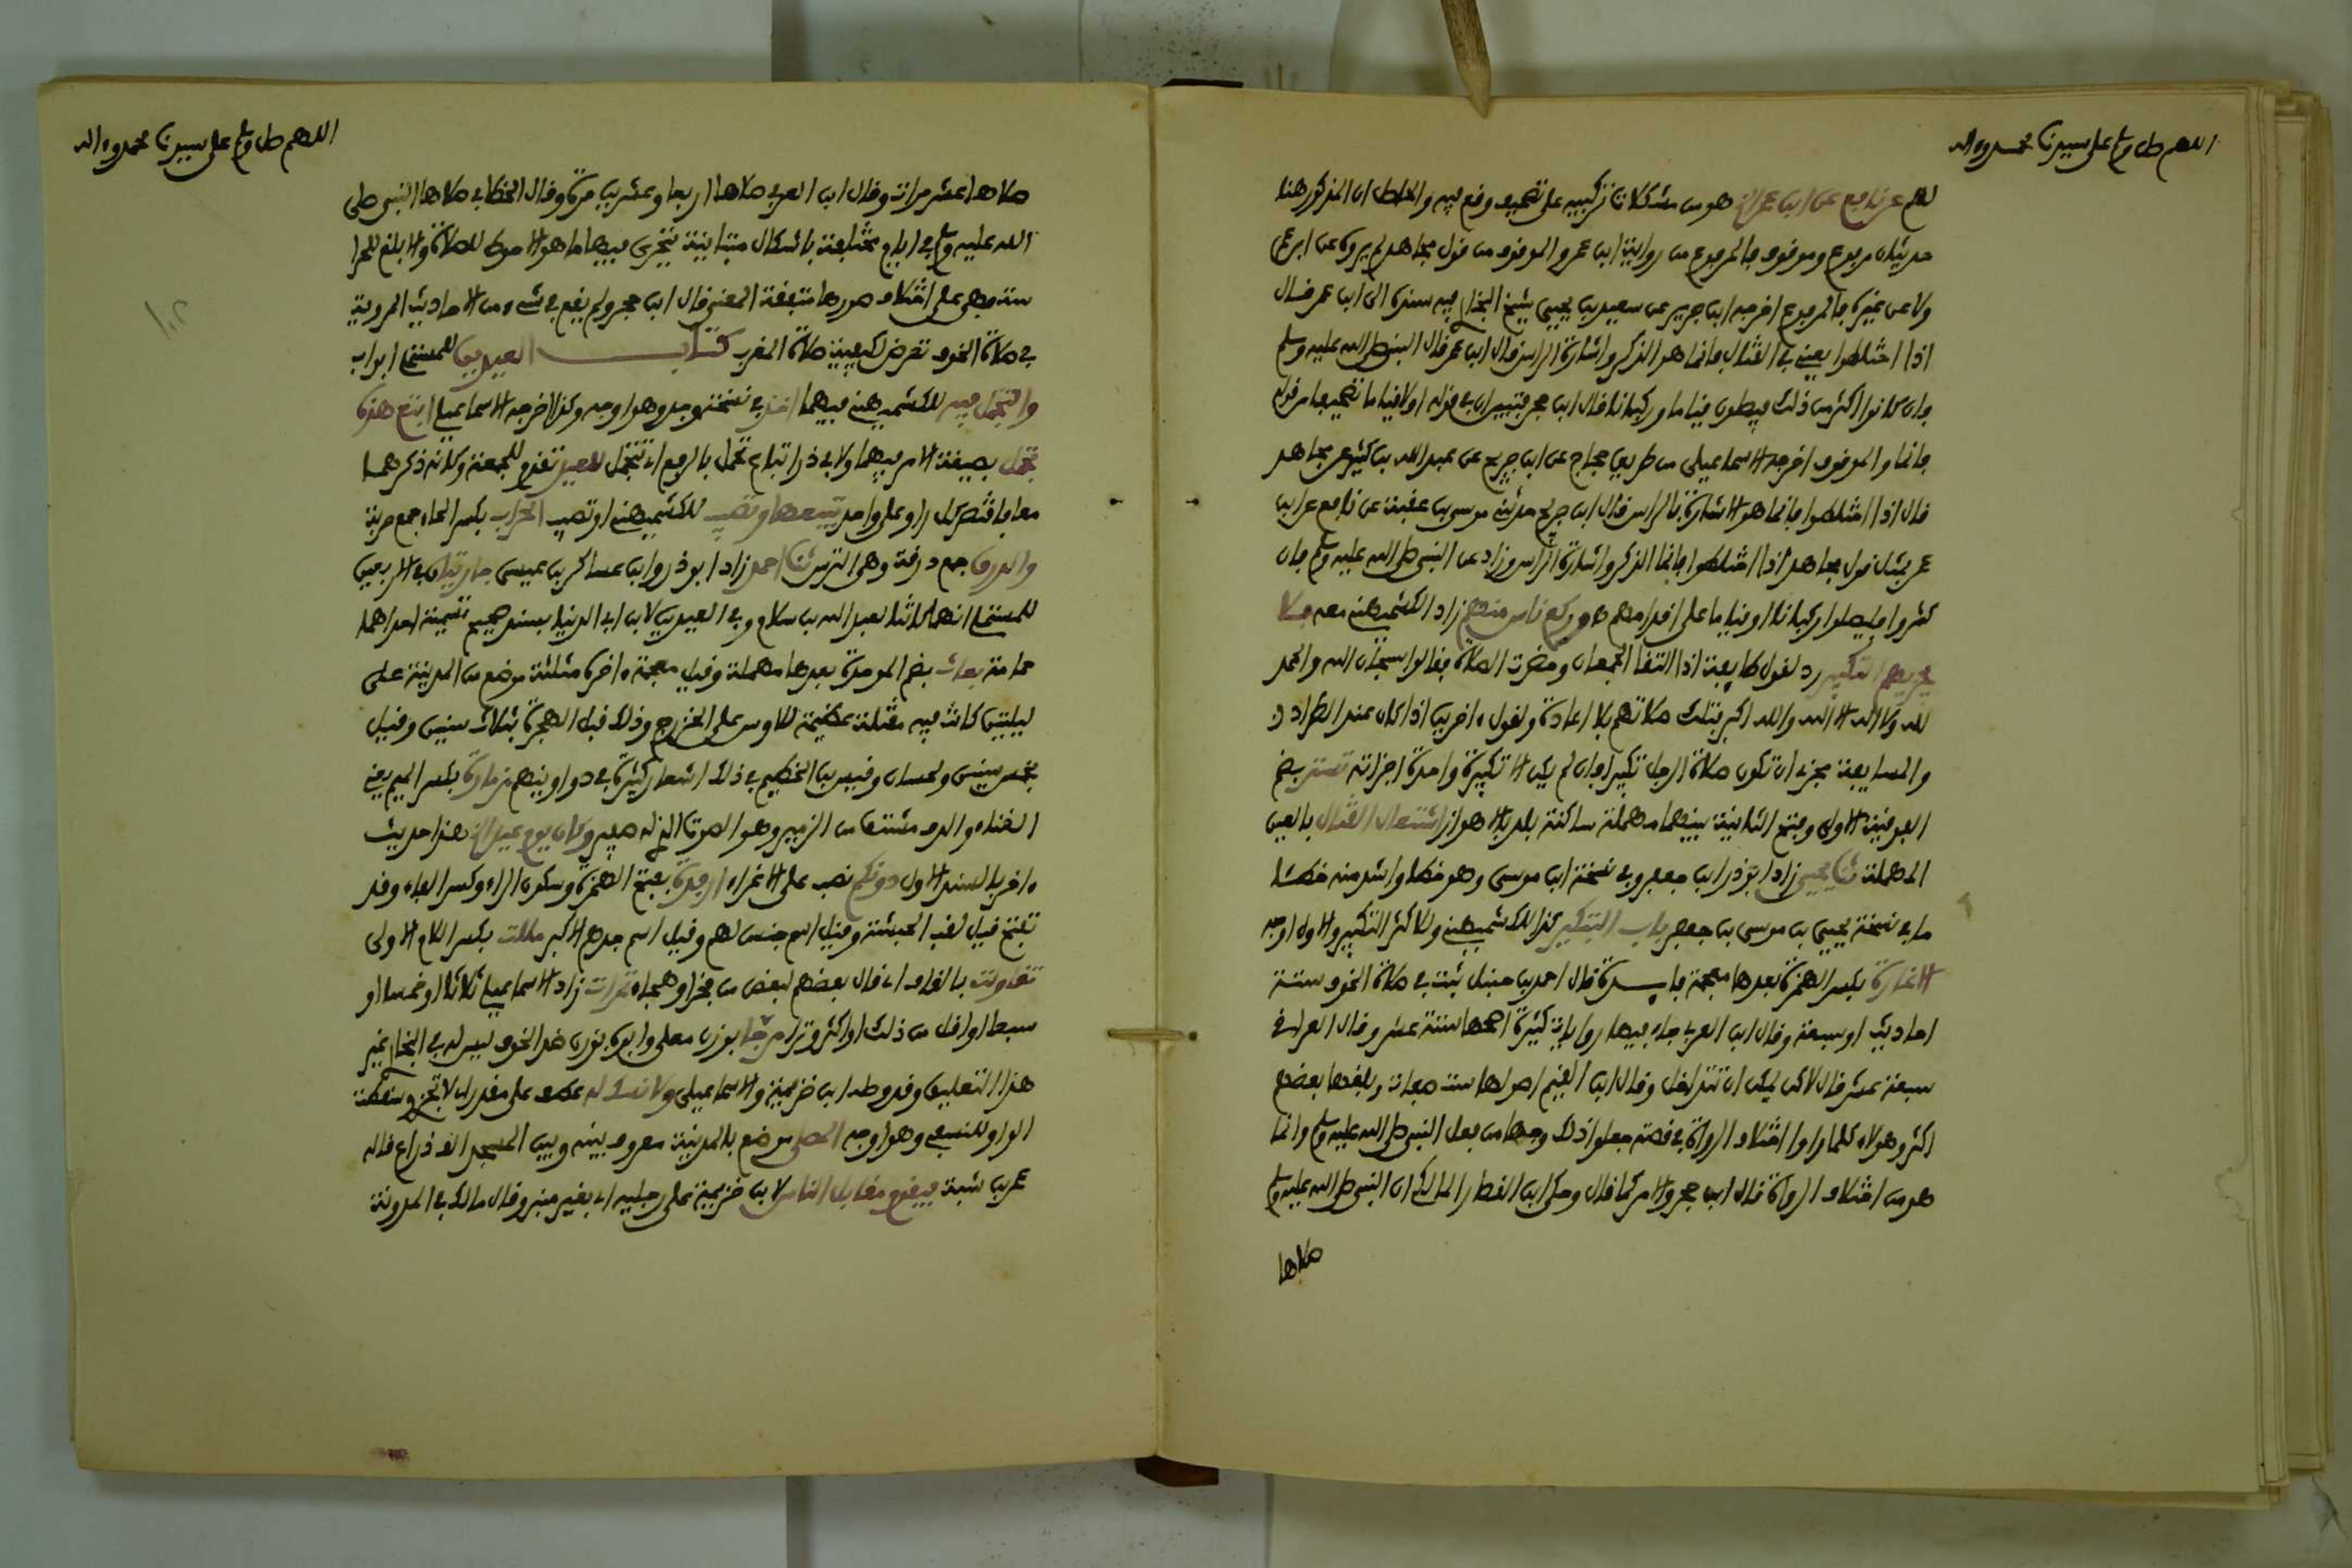 اللهم صل وسلم على سيدنا محمد وءاله
لهم عن نافع عن ابن عمر الخ هو من مشكلات تركيبيه على تصحيف وقع فيه والحاصل ان المذكور هنا
حديثان مرفوع وموقوف فالمرفوع من رواية ابن عمر والموقوف من قول مجاهد لم يروه عن ابن عمر
ولا عن غيره فالمرفوع اخرجه ابن جرير عن سعيد بن يحيى شيخ البخاري فيه بسنده الى ابن عمر قال
اذا اختلطوا يعني في القتال فانما هو الذكر واشارة الراس قال ابن عمر قال النبي صلى الله عليه وسلم
وان كانوا اكثر من ذلك فيصلون قياما وركبانا قال ابن حجر فتبين ان في قوله اولا قياما تصحيفا من قوله
فانما والموقوف اخرجه الاسماعيلي من طريق حجاج عن ابن جريج عن عبد الله بن كثير عن مجاهد
قال اذا اختلطوا فانما هو الاشارة بالراس قال ابن جريج حدثني موسى بن عقبة عن نافع عن ابن
عمر بمثل قول مجاهد اذا اختلطوا فانما الذكر واشارة الراس وزاد عن النبي صلى الله عليه وسلم فان
كثروا فليصلوا ركبانا او قياما على اقدامهم وركع ناس منهم زاد الكشميهني معه
التكبير رد لقول طايفة اذا التقا الجمعان وحضرت الصلاة فقالوا سبحان الله والحمد
لله ولا اله الا الله والله اكبر فتلك صلاتهم بلا اعادة ولقول ءاخرين اذا كان عند الطراد
والمسايفة يجزء ان تكون صلاة الرجل تكبيرا وان لم يكن الا تكبيرة واحدة اجزاته تستر بضم
الفوقية الاولى وفتح الثانية بينهما مهملة ساكنة بلد بالاهواز اشتعال القتال بالعين
المهملة ثنا يحيى زاد ابو ذر ابن جعفر وفي نسخة ابن موسى وهو خطا واشد منه خطا
ما في نسخة يحيى بن موسى بن جعفر باب التبكير كذا للكشميهني وللاكثر التكبير والاول اوجه
الاغارة بكسر الهمزة بعدها معجمة قال احمد بن حنبل ثبت في صلاة الخوف ستة
احاديث او سبعة وقال ابن العربي جاء فيها روايات كثيرة اصحها ستة عشر وقال العراقي
سبعة عشر قال لاكن يمكن ان تتداخل وقال ابن القيم اصولها ست صفات وبلغها بعضهم
اكثر وهولاء كلما راوا اختلاف الرواة في قصة جعلوا ذلك وجها من فعل النبي صلى الله عليه وسلم وانما
هو من اختلاف الرواة قال ابن حجر والامر كما قال وحكى ابن القصار المالكي ان النبي صلى الله عليه وسلم
صلاها
اللهم صل وسلم على سيدنا محمد وءاله
صلاها عشر مرات وقال ابن العربي صلاها اربعا وعشرين مرة وقال الخطابي صلاها النبي صلى
الله عليه وسلم في ايام مختلفة باشكال متباينة يتحرى فيها ما هو الاحوط للصلاة والابلغ للحرا
سة فهي على اختلاف صورها متفقة المعنى قال ابن حجر ولم يقع في شيء من الاحاديث المروية
في صلاة الخوف تعرض لكيفية صلاة المغرب كتاب العيدين للمستملي ابواب
والتجمل فيه للكشميهني فيهما اخذ في نسخة وجد وهو اوجه وكذا اخرجه الاسماعيلي ابتع هذه
تجمل بصيغة الامر فيهما ولابي ذر ابتاع تجمل بالرفع اي تتجمل للعيد تقدم للجمعة وكانه ذكرهما
معا فاقتصر كل راو على واحد تبيعها وتصيب للكشميهني او تصيب الحراب بكسر الحاء جمع حربة
والدرق جمع درقة وهي الترس ثنا احمد زاد ابو ذر وابن عساكر بن عيسى جاريتان في الاربعين
للمستملي انهما كانتا لعبد الله بن سلام وفي العيدين لابن ابي الدنيا بسند صحيح تسمية احداهما
حمامة بعاث بضم الموحدة بعدها مهملة وقيل معجمة ءاخره مثلثة موضع من المدينة على
ليلتين كانت فيه مقتلة عظيمة للاوس على الخزرج وذلك قبل الهجرة بثلاث سنين وقيل
بخمس سنين ولحسان وقيس بن الخطيم في ذلك اشعار كثيرة في دواوينهم مزمارة بكسر الميم يعني
الغناء والدف مشتقا من الزمير وهو الصوت الذي له صفير وكان يوم عيد الخ هذا حديث
ءاخر بالسند الاول دونكم نصب على الاغراء ارفدة بفتح الهمزة وسكون الراء وكسر الفاء وقد
تفتح قيل لقب الحبشة وقيل اسم جنس لهم وقيل اسم جدهم الاكبر مللت بكسر اللام الاولى
تقاولت بالقاف اي قال بعضهم لبعض من فخر او هجاء تمرات زاد الاسماعيلي ثلاثا او خمسا او
سبعا او اقل من ذلك او اكثر وترا مرجا بوزن معلى وابوه بوزن ضد الخوف ليس له في البخاري غير
هذا التعليق وقد وصله ابن خزيمة والاسماعيلي ولا نسك له عطف على مقدر اي لا تجزء وسقطت
الواو للنسفي وهو اوجه المصلى موضع بالمدينة معروف بينه وبين المسجد الف ذراع قاله
عمر بن شبة فيقوم مقابل الناس لابن خزيمة على رجليه اي بغير منبر وقال مالك في المدونة